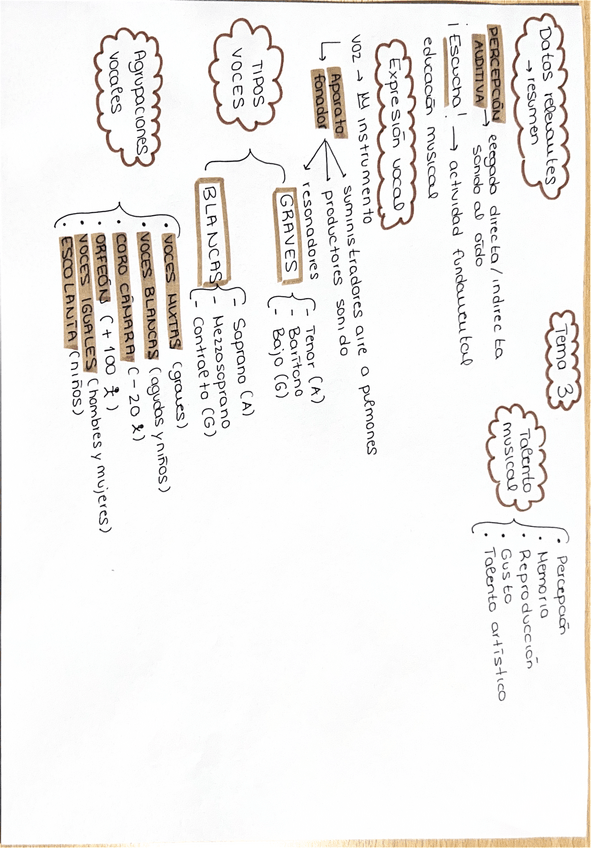 Tema 3
Datos relevantes
→ resumen
PERCEPCIÓN
AUDITIVA → llegada directa/indirecta
sonido al oído
¡Escucha! → actividad fundamental
educación musical
Talento
musical
• Percepción
• Memoria
• Reproducción
• Gusto
• Talento artístico
Expresión vocal
voz → 1º instrumento
↳ Aparato
fonador
→ suministradores aire a pulmones
→ productores sonido
→ resonadores
TIPOS
VOCES
GRAVES
- Tenor (A)
- Barítono
- Bajo (G)
BLANCAS
- Soprano (A)
- Mezzosoprano
- Contralto (G)
Agrupaciones
vocales
• VOCES MIXTAS (graves)
• VOCES BLANCAS (agudas y niños)
• CORO CÁMARA (-20)
• ORFEÓN (+100)
• VOCES IGUALES (hombres y mujeres)
• ESCOLANÍA (niños)